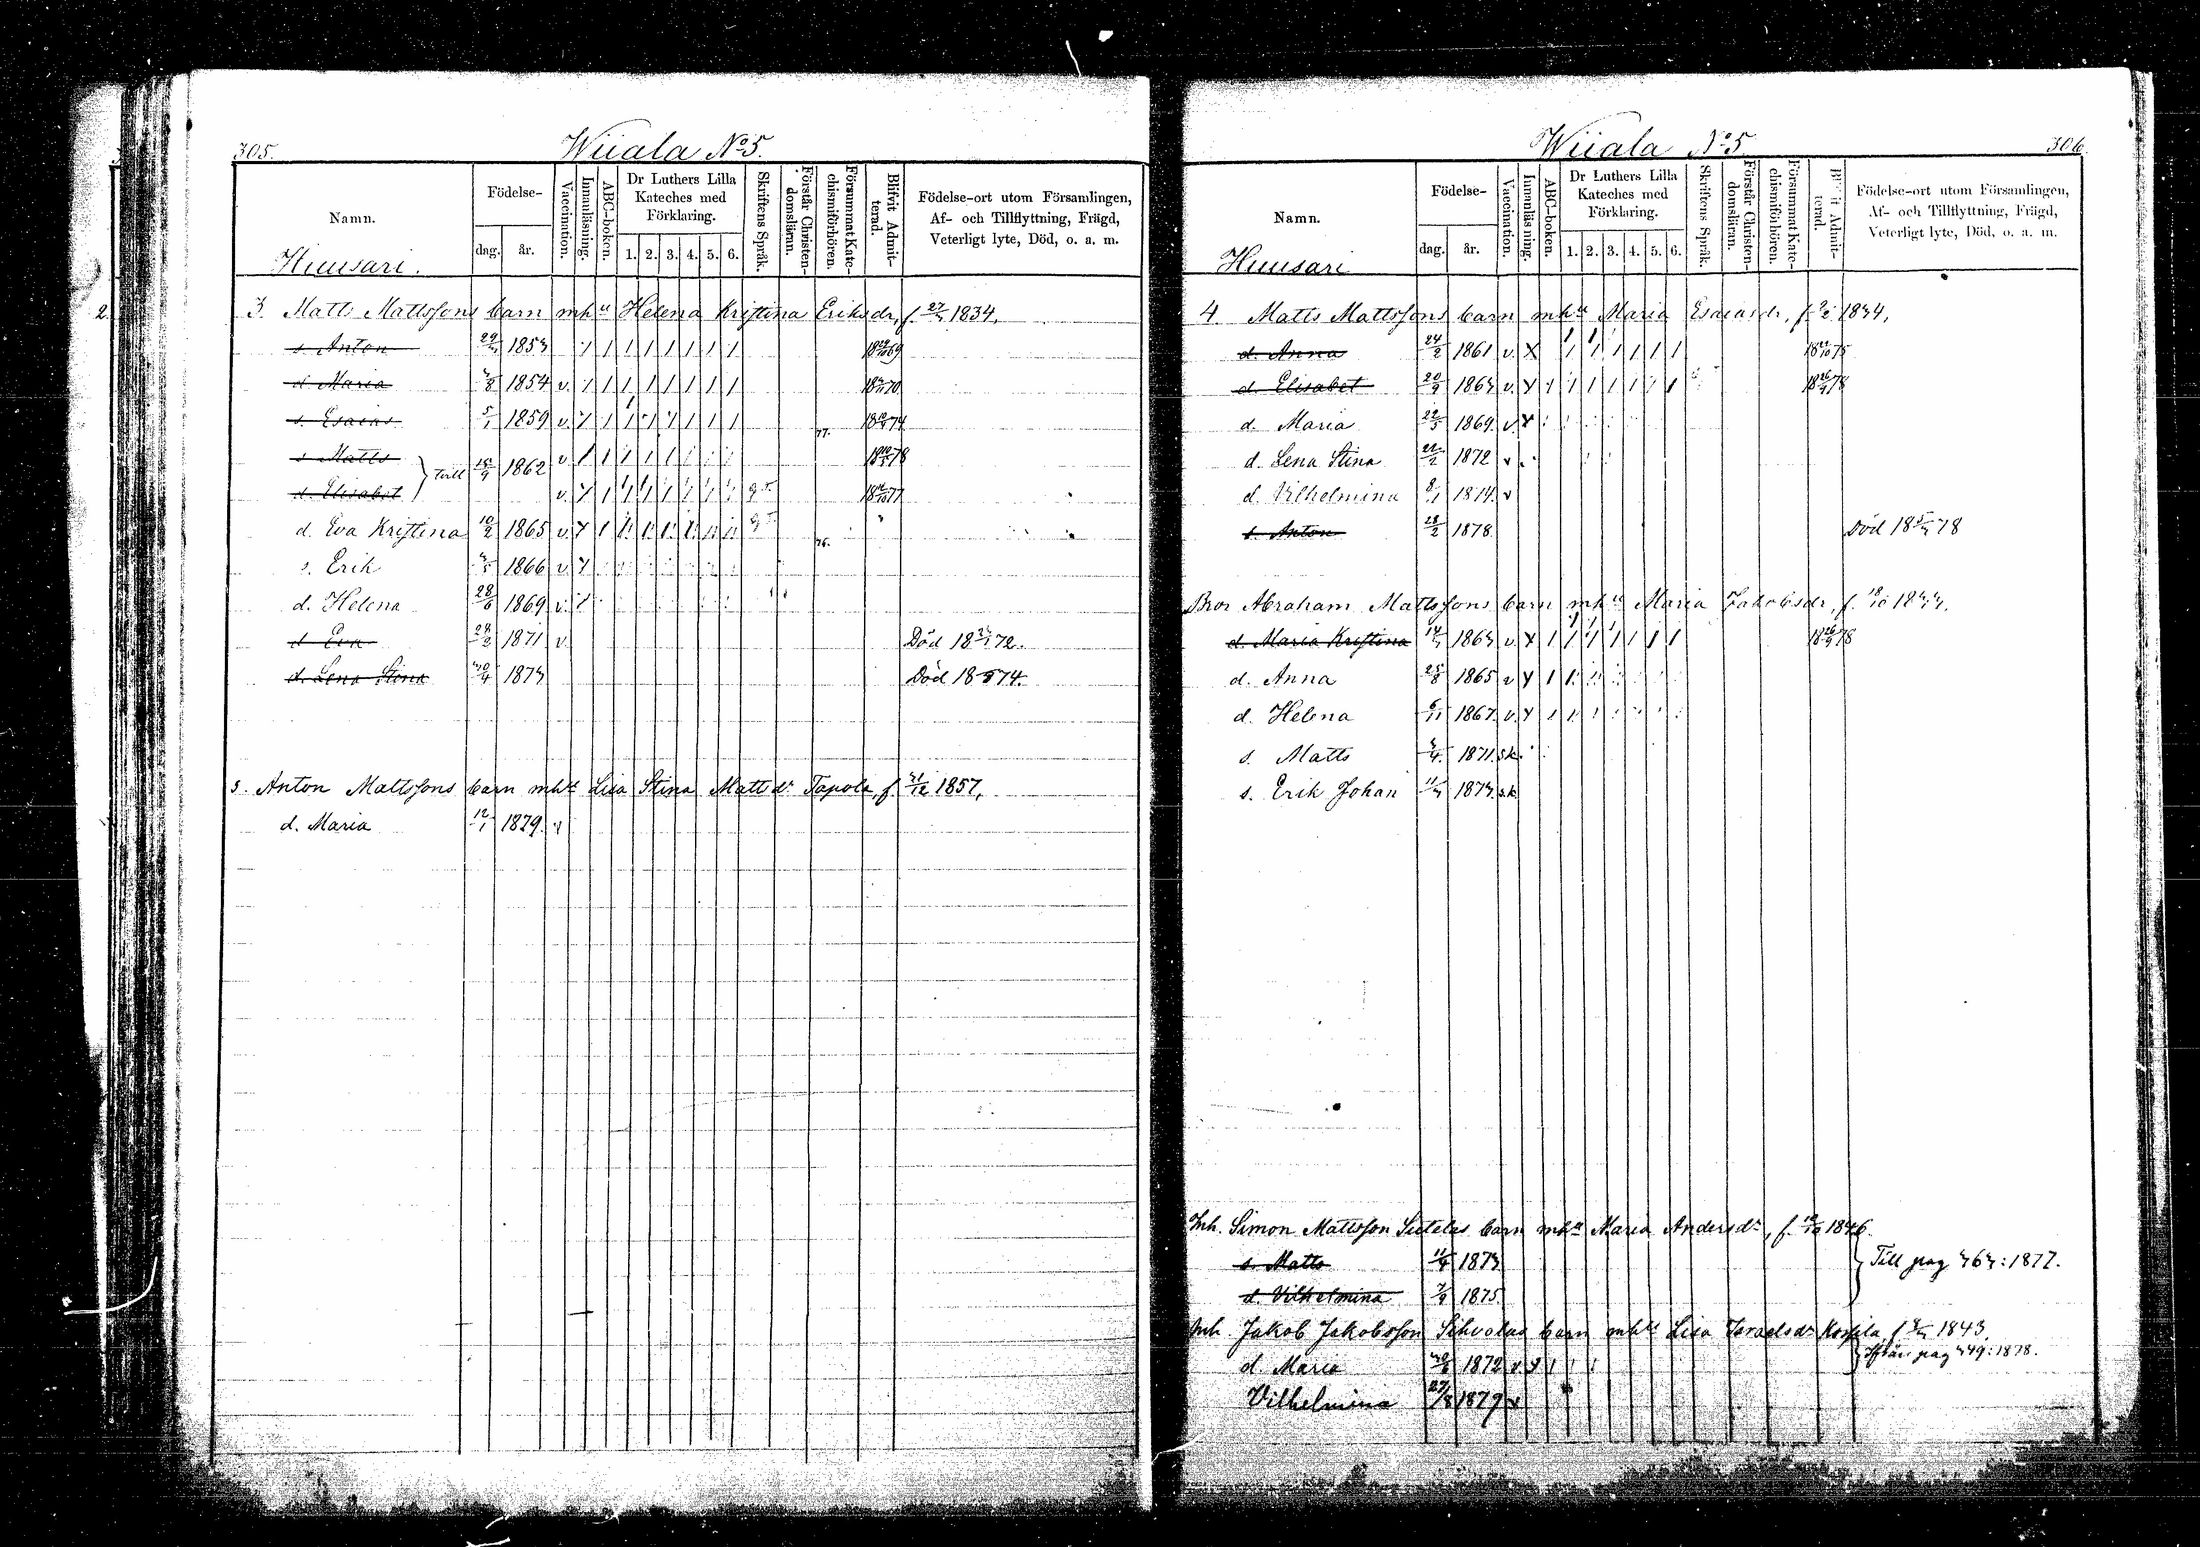 305.
Wiiala No 5.
Namn.
Födelse-
dag.
år.
Vaccination.
Innanläsning.
ABC-boken.
Dr Luthers Lilla Kateches med Förklaring.
1. 2. 3. 4. 5. 6.
Skriftens Språk.
Förstår Christendomsläran.
Försummat Katechismiförhören.
Blifvit Admitterad.
Födelse-ort utom Församlingen, Af- och Tillflyttning, Frägd, Veterligt lyte, Död, o. a. m.
Huusari.
3. Matts Mattssons barn mhu Helena Kristina Eriksdr, f. 1834,
s Anton 1853
d. Maria 1854 v.
s. Esaias 5/1 1859 v.
77.
s Matts
tvill 1862 v
d. Elisabet v.
d. Eva Kristina 10/2 1865 v.
76.
s. Erik 1866 v
d. Helena 28/6 1869 v.
d Eva 1871 v. Död 18 72.
d. Lena Stina 30/4 1873 Död 18 74.
s. Anton Mattssons barn mhu Lisa Stina Mattsdr Tapola, f. 31/12 1857,
d. Maria 12/1 1879 v
Wiiala No 5
306.
Namn.
Födelse-
dag.
år.
Vaccination.
Innanläsning.
ABC-boken.
Dr Luthers Lilla Kateches med Förklaring.
1. 2. 3. 4. 5. 6.
Skriftens Språk.
Förstår Christendomsläran.
Försummat Katechismiförhören.
Blifvit Admitterad.
Födelse-ort utom Församlingen, Af- och Tillflyttning, Frägd, Veterligt lyte, Död, o. a. m.
Huusari
4 Matts Mattssons barn mhu Maria Esaiasdr, f. 1834,
d. Anna 24/2 1861 v. X
d. Elisabet 20/9 1863 v.
d. Maria 22/5 1869 v.
d. Lena Stina 1872 v
d. Vilhelmina 8/1 1874 v
s. Anton 28/2 1878 Död 18 5/3 78
Bror Abraham Mattssons barn mhu Maria Jakobsdr, f. 18/10 1833.
d. Maria Kristina 14/3 1863 v
d. Anna 25/8 1865 v
d. Helena 6/11 1867 v.
s. Matts 3/4 1871 s.k.
s. Erik Johan 11/3 1873 s.k.
Inh. Simon Mattsson Sutelas barn mhu Maria Andersdr, f. 1846
s. Matts 11/4 1873
Till pag 363: 1877.
d. Vilhelmina 7/9 1875
Inh. Jakob Jakobsson Sihvolas barn mhu Lisa Israelsdr Korpela, f 1843.
Ifrån pag 349: 1878.
d. Maria 1872 v
Vilhelmina 27/8 1879 v